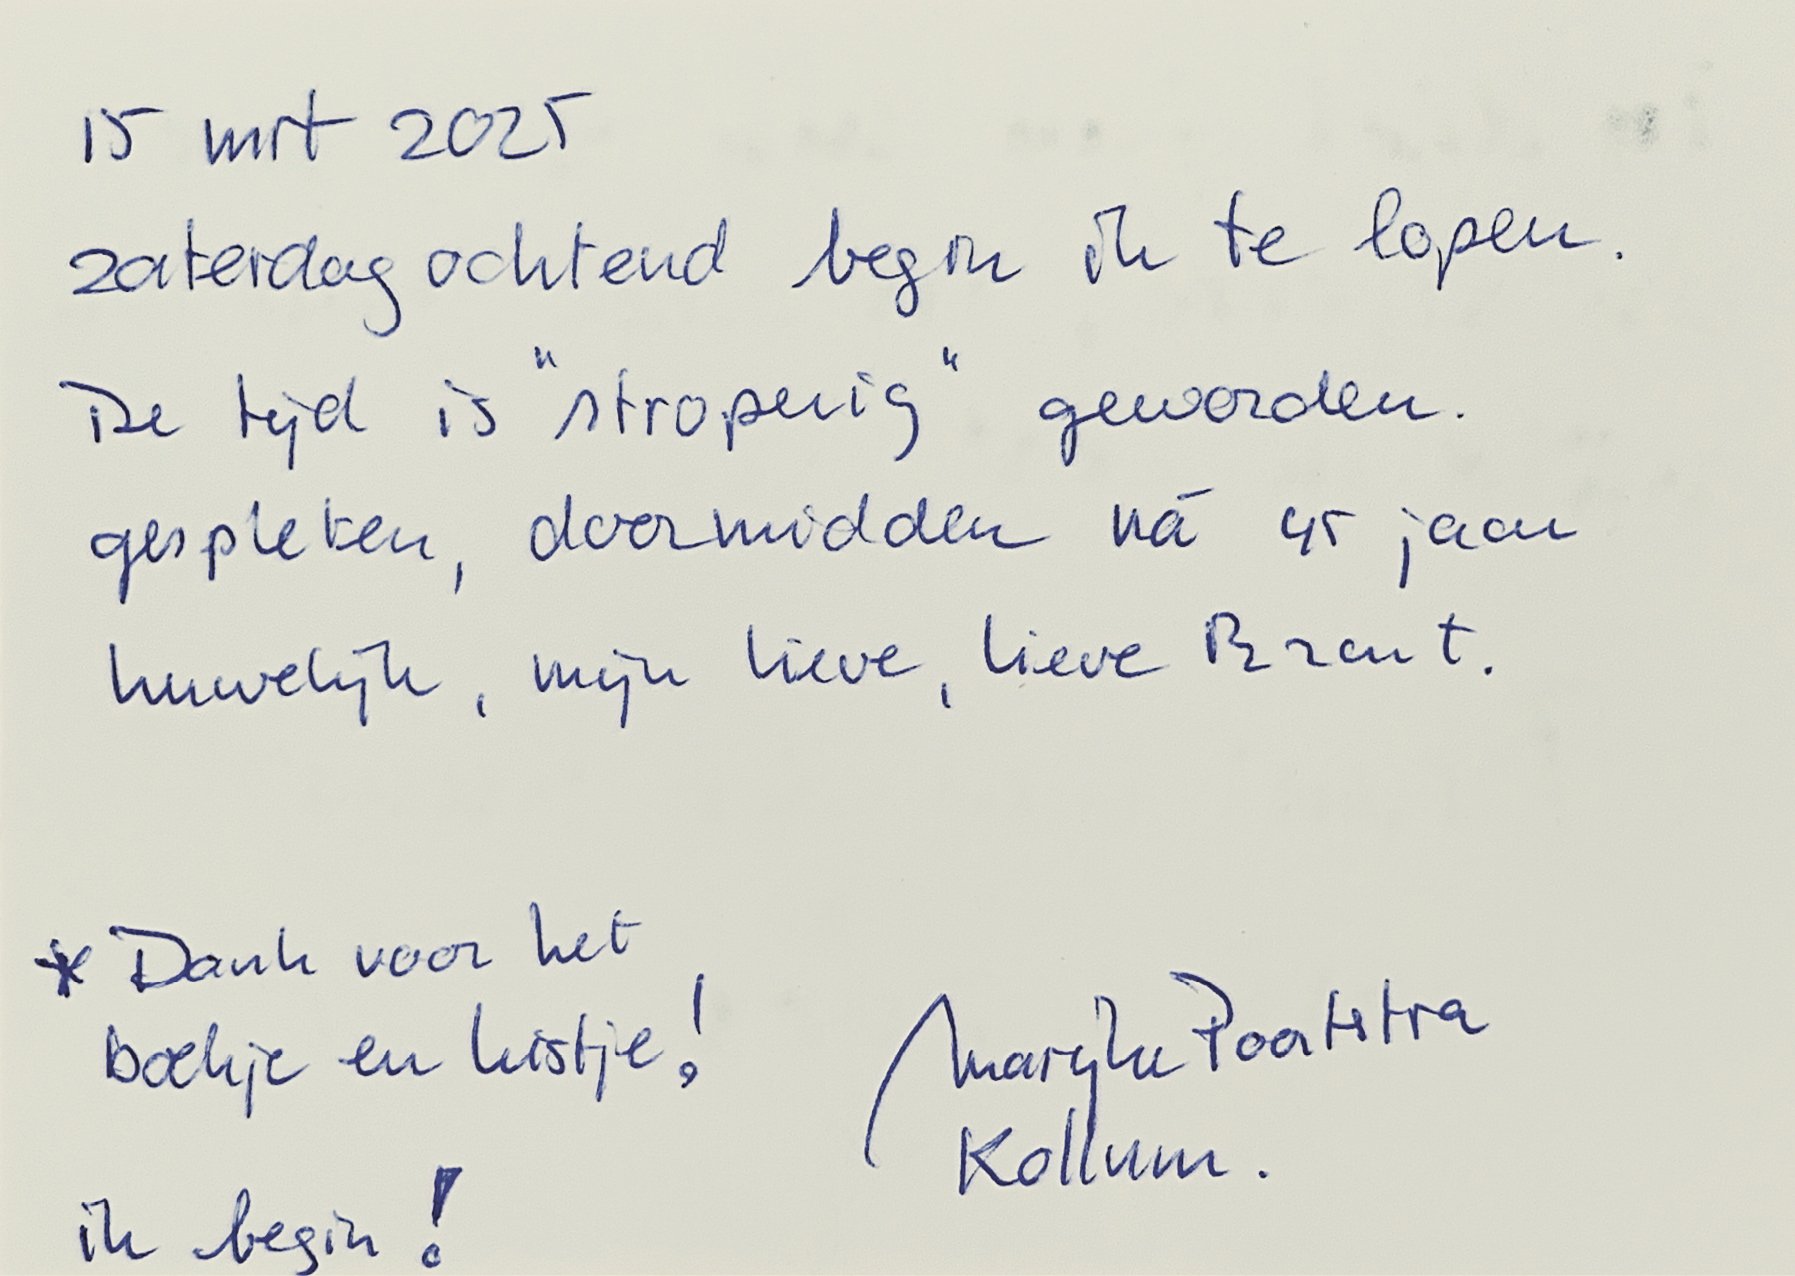 15 mrt 2025
zaterdagochtend begin ik te lopen.
De tijd is "stroperig" geworden.
gespleten, doormidden ná 45 jaar
huwelijk, mijn lieve, lieve Brant.
* Dank voor het
boekje en kistje!
Marijke Poatstra
Kollum.
ik begin!